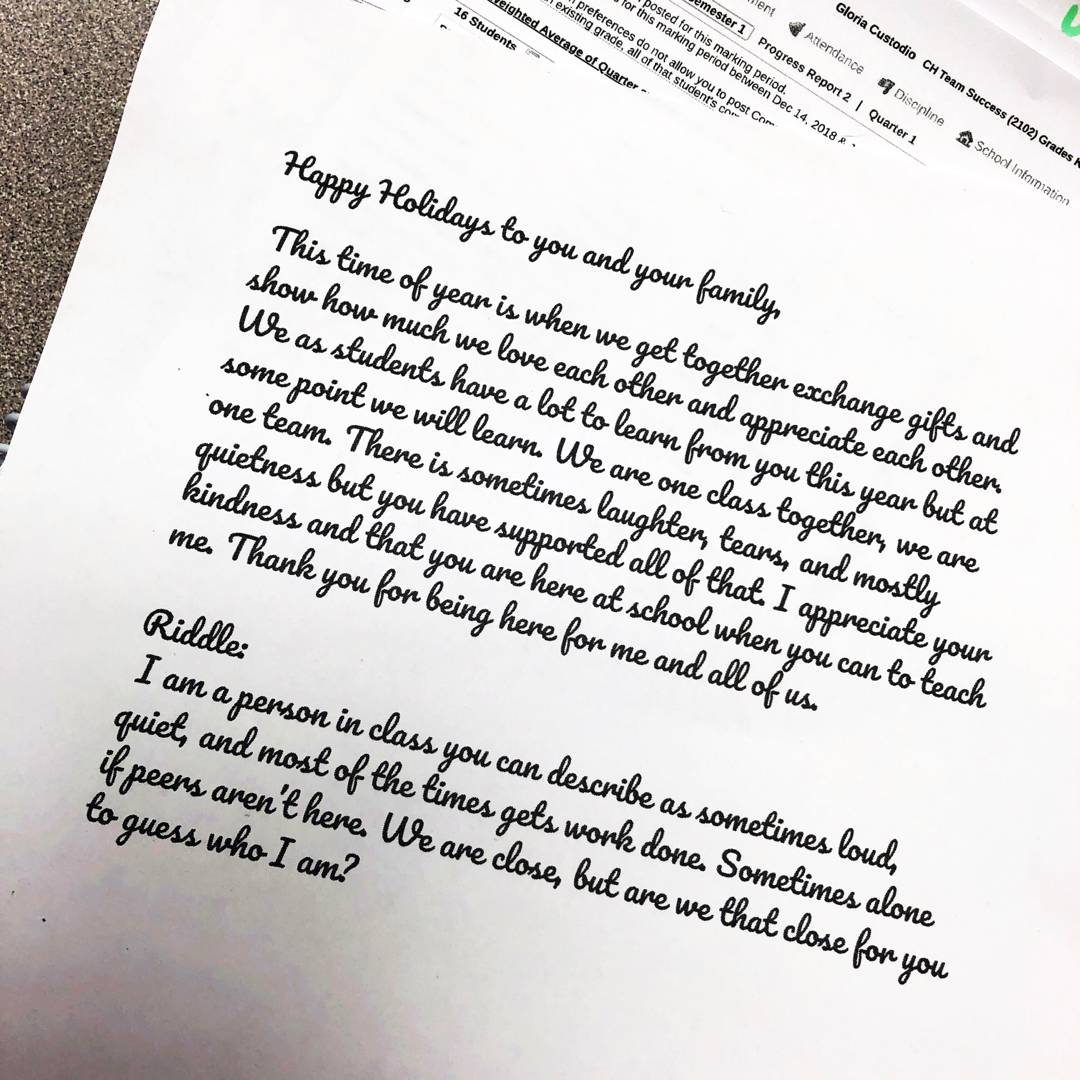 Gloria Custodio CH Team Success (2102) Grades
Attendance
Discipline
School Information
Semester 1
Progress Report 2 | Quarter 1
posted for this marking period.
for this marking period between Dec 14, 2018
preferences do not allow you to post
existing grade, all of that student's
Weighted Average of Quarter
16 Students
Happy Holidays to you and your family,
This time of year is when we get together exchange gifts and
show how much we love each other and appreciate each other.
We as students have a lot to learn from you this year but at
some point we will learn. We are one class together, we are
one team. There is sometimes laughter, tears, and mostly
quietness but you have supported all of that. I appreciate your
kindness and that you are here at school when you can to teach
me. Thank you for being here for me and all of us.
Riddle:
I am a person in class you can describe as sometimes loud,
quiet, and most of the times gets work done. Sometimes alone
if peers aren't here. We are close, but are we that close for you
to guess who I am?